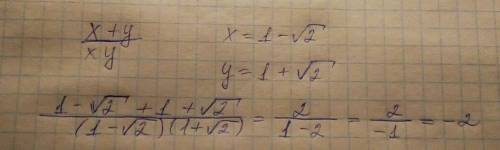 (x+y)/(xy) x = 1 - √2
y = 1 + √2
(1 - √2 + 1 + √2)/((1 - √2)(1 + √2)) = 2/(1-2) = 2/(-1) = -2